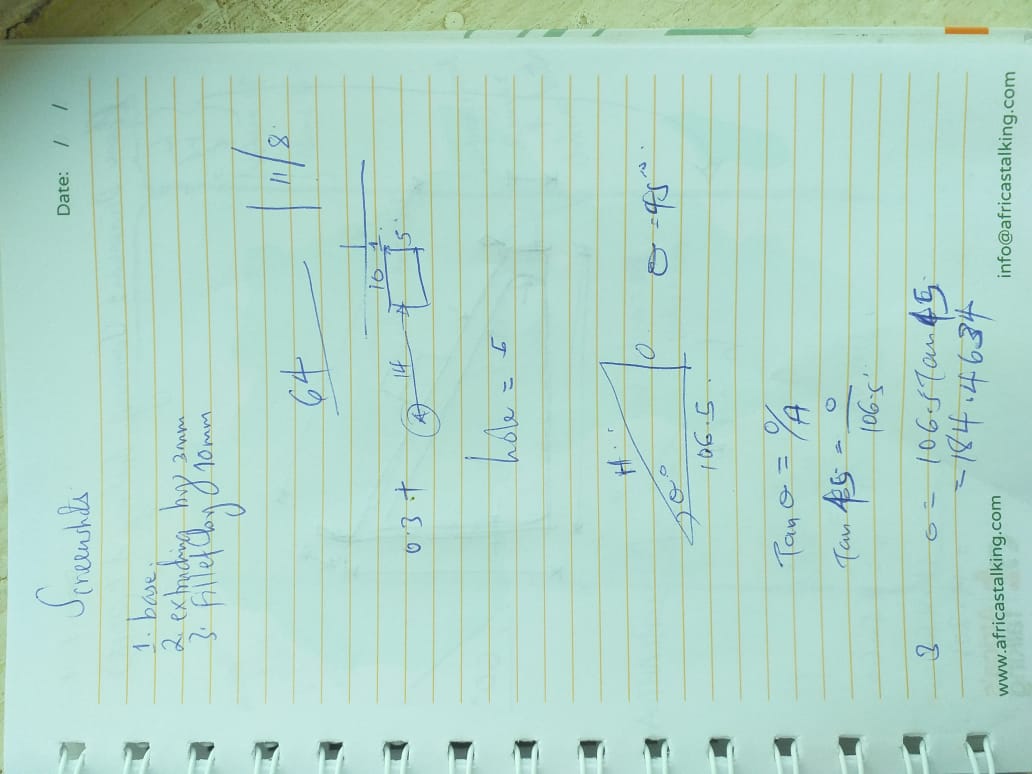 Date: / /
Screenshots
1. base.
2. extruding by 2mm
3. fillet by 10mm
11/8
64
10 1
5
0.3 t
A 14
hole = 5
H
θ°
O
106.5
θ = 45°
Tan θ = O/A
Tan 45 = O
106.5
O = 106.5 Tan 45
= 184.4634
www.africastalking.com
info@africastalking.com